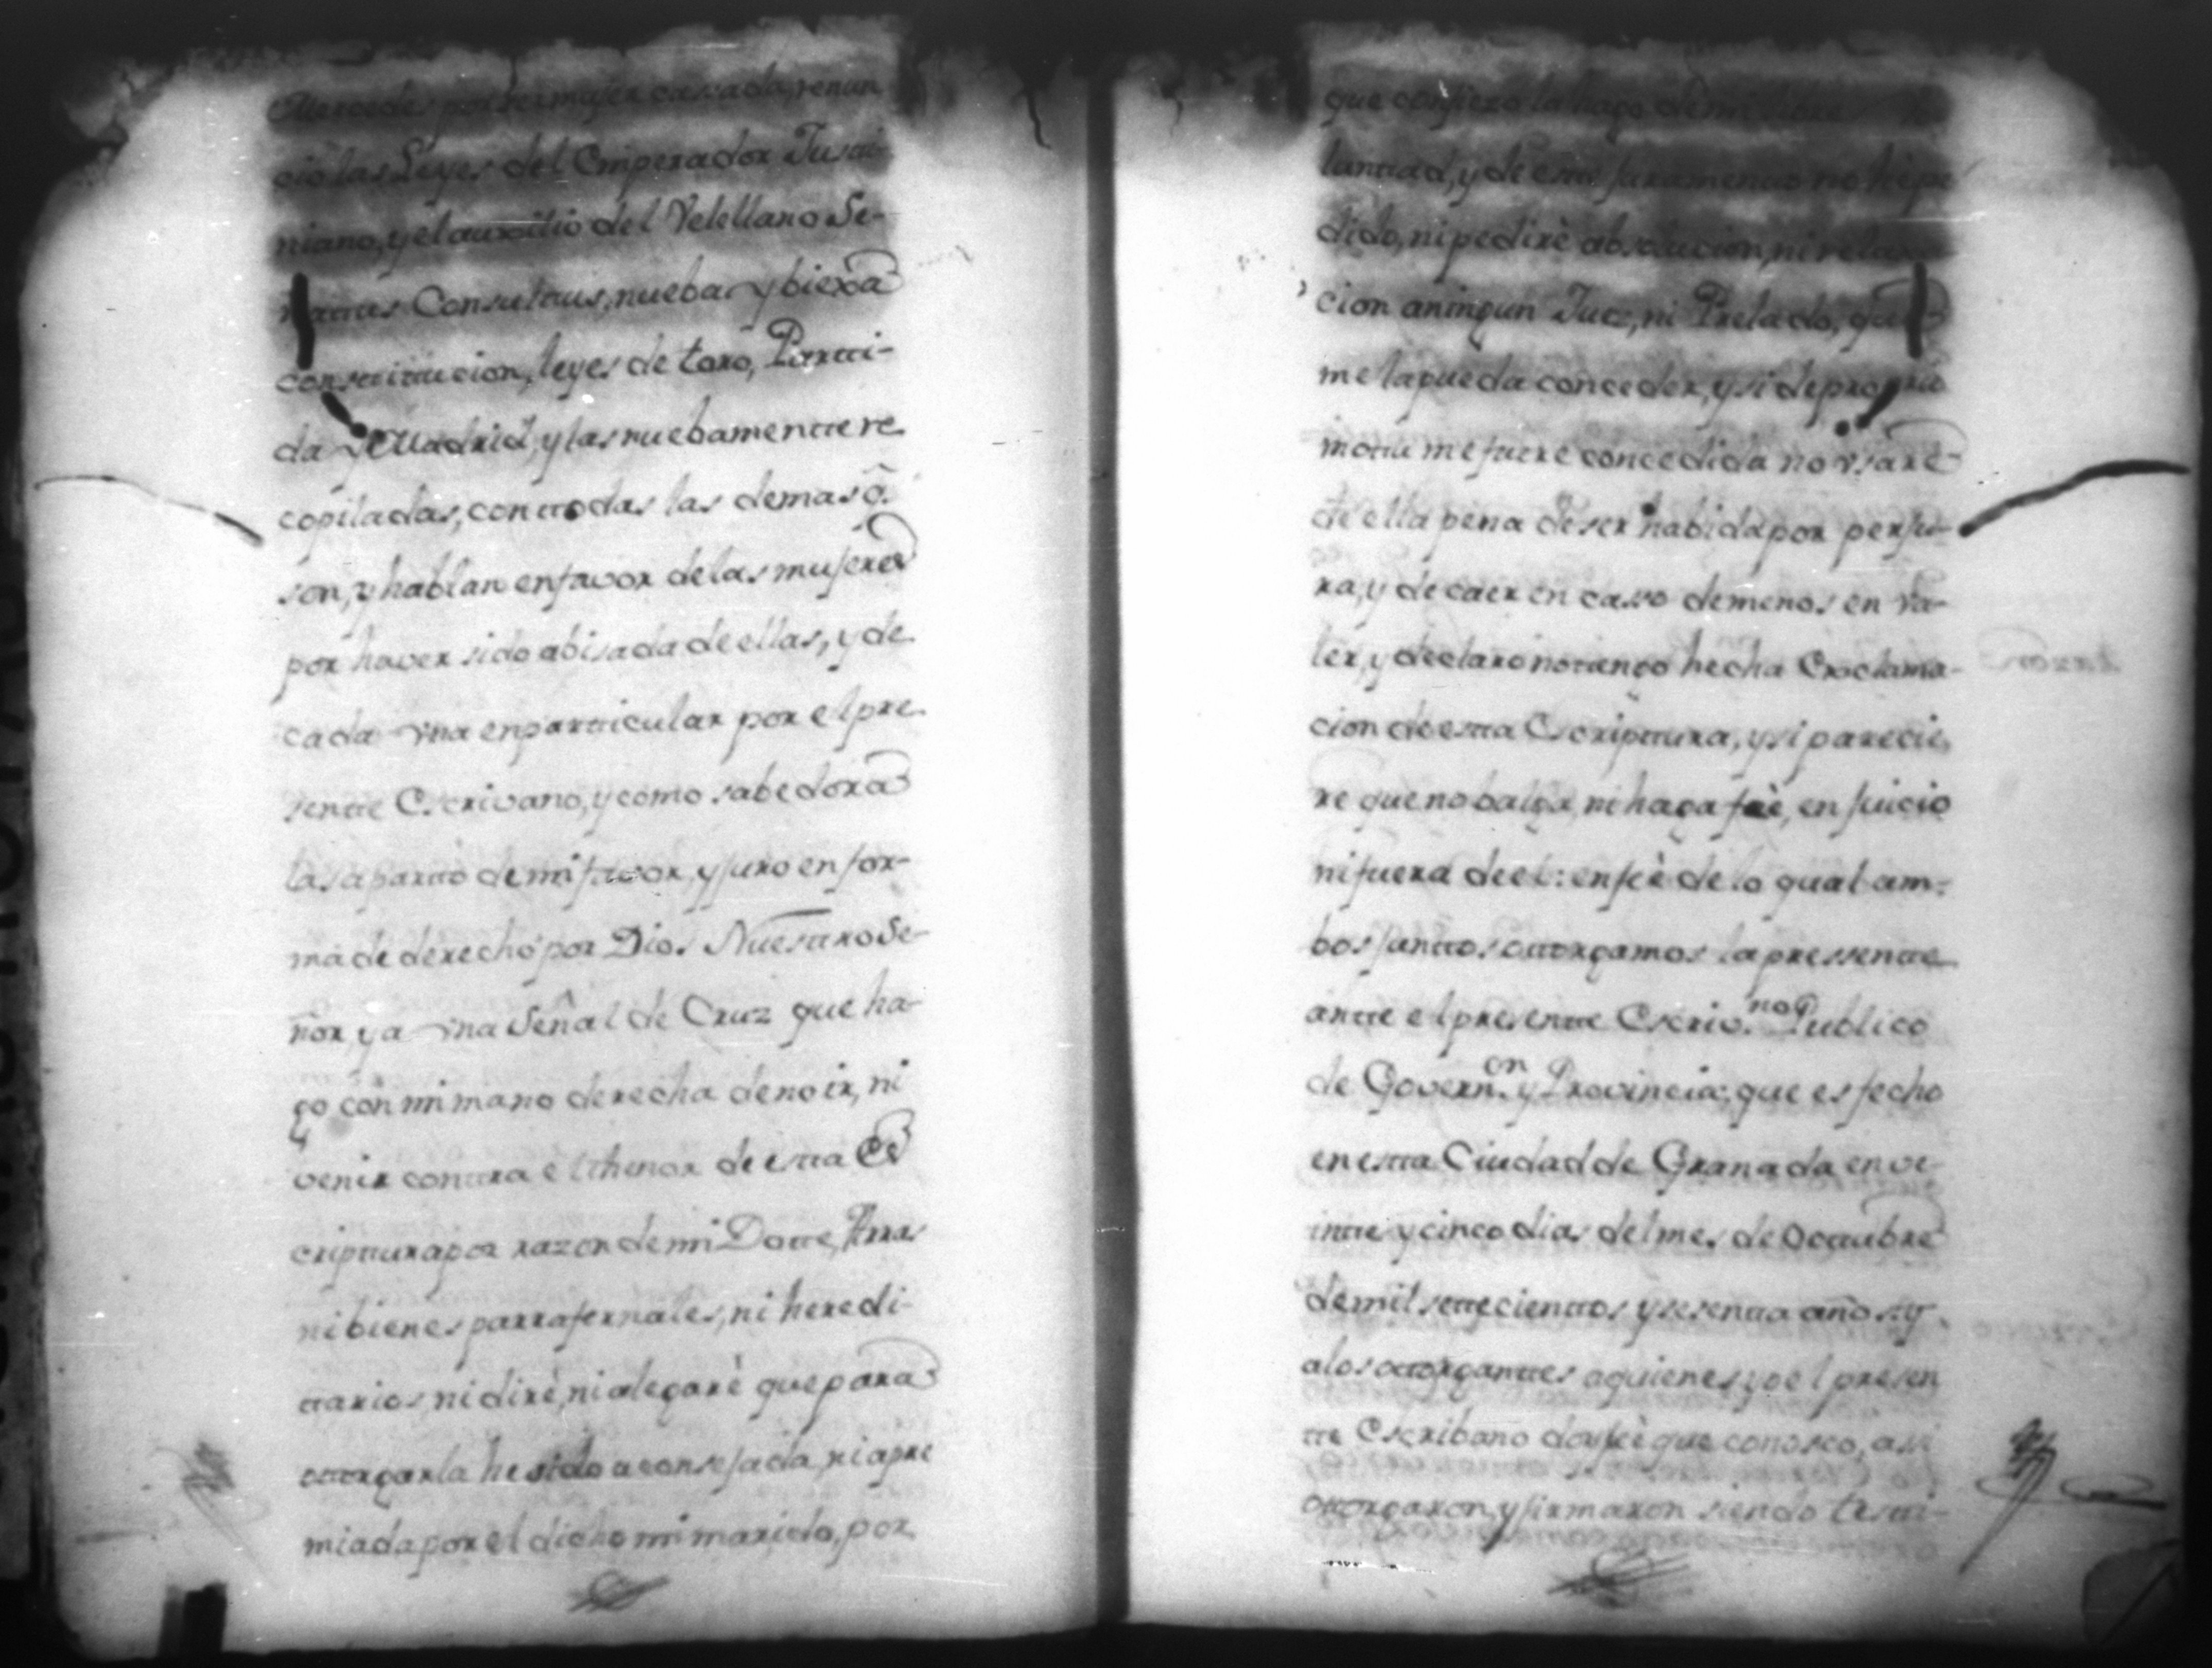 Mercedes por ser mujer casada, renun
ció las Leyes del Emperador Justti-
niano, y el auxilio del Velellano Se-
nattus Consultus, nueba y biexa
consttittucion, leyes de toro, Partti-
da y Madrid, y las nuebamentte re
copiladas, con ttodas las demas q̃.
son, y hablan en favor de las mujeres
por haver sido abisada de ellas, y de
cada vna en partticular por el pre
sentte Escrivano, y como sabedora
las apartto de mi favor, y juro en for-
ma de derecho por Dios Nuesttro Se-
ñor, y a vna Señal de Cruz que ha-
go con mi mano derecha de no ir, ni
venir conttra el tthenor de estta Es
cripttura por razon de mi Dotte, Arras
ni bienes parrafernales, ni heredi-
ttarios, ni dirè, ni alegarè que para
ottorgarla he sido aconsejada, ni apre
miada por el dicho mi marido, por
que confiezo la hago de mi libre
lunttad, y de estte juramentto no hè pe
dido, ni pedirè absolucion, ni relaxa
cion a ningun Juez, ni Prelado, que
me la pueda conceder, y si de proprio
mottu me fuere concedida no vsarè
de ella pena de ser habida por perju-
ra, y de caer en caso de menos en va-
ler, y declaro no ttengo hecha Exclama-
cion de estta Escripttura, y si parecie,
re que no balga, ni haga feè, en juicio
ni fuera de el: en feè de lo qual am-
bos junttos ottorgamos la pressentte
antte el presentte Escriv.no Publico
de Govern.on y Provincia: que es fecho
en estta Ciudad de Granada en ve-
intte y cinco dias del mes de Octtubre
de mil settecienttos y sesentta años: y
a los ottorganttes a quienes yo el presen
tte Escribano doy feè que conosco, assi
ottorgaron, y firmaron siendo testti-